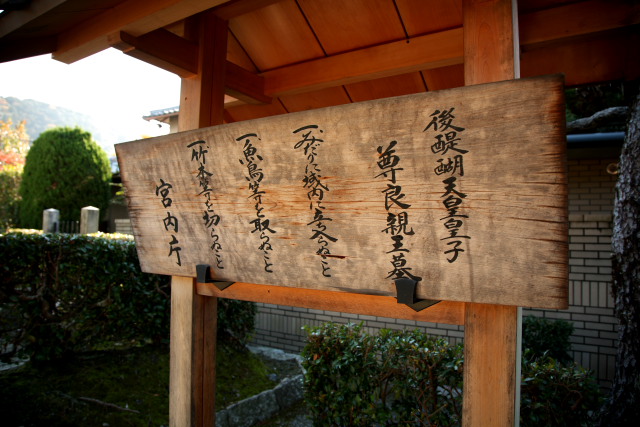 後醍醐天皇皇子
尊良親王墓
一、みだりに域内に立入らぬこと
一、魚鳥等を取らぬこと
一、竹木等を切らぬこと
宮内庁